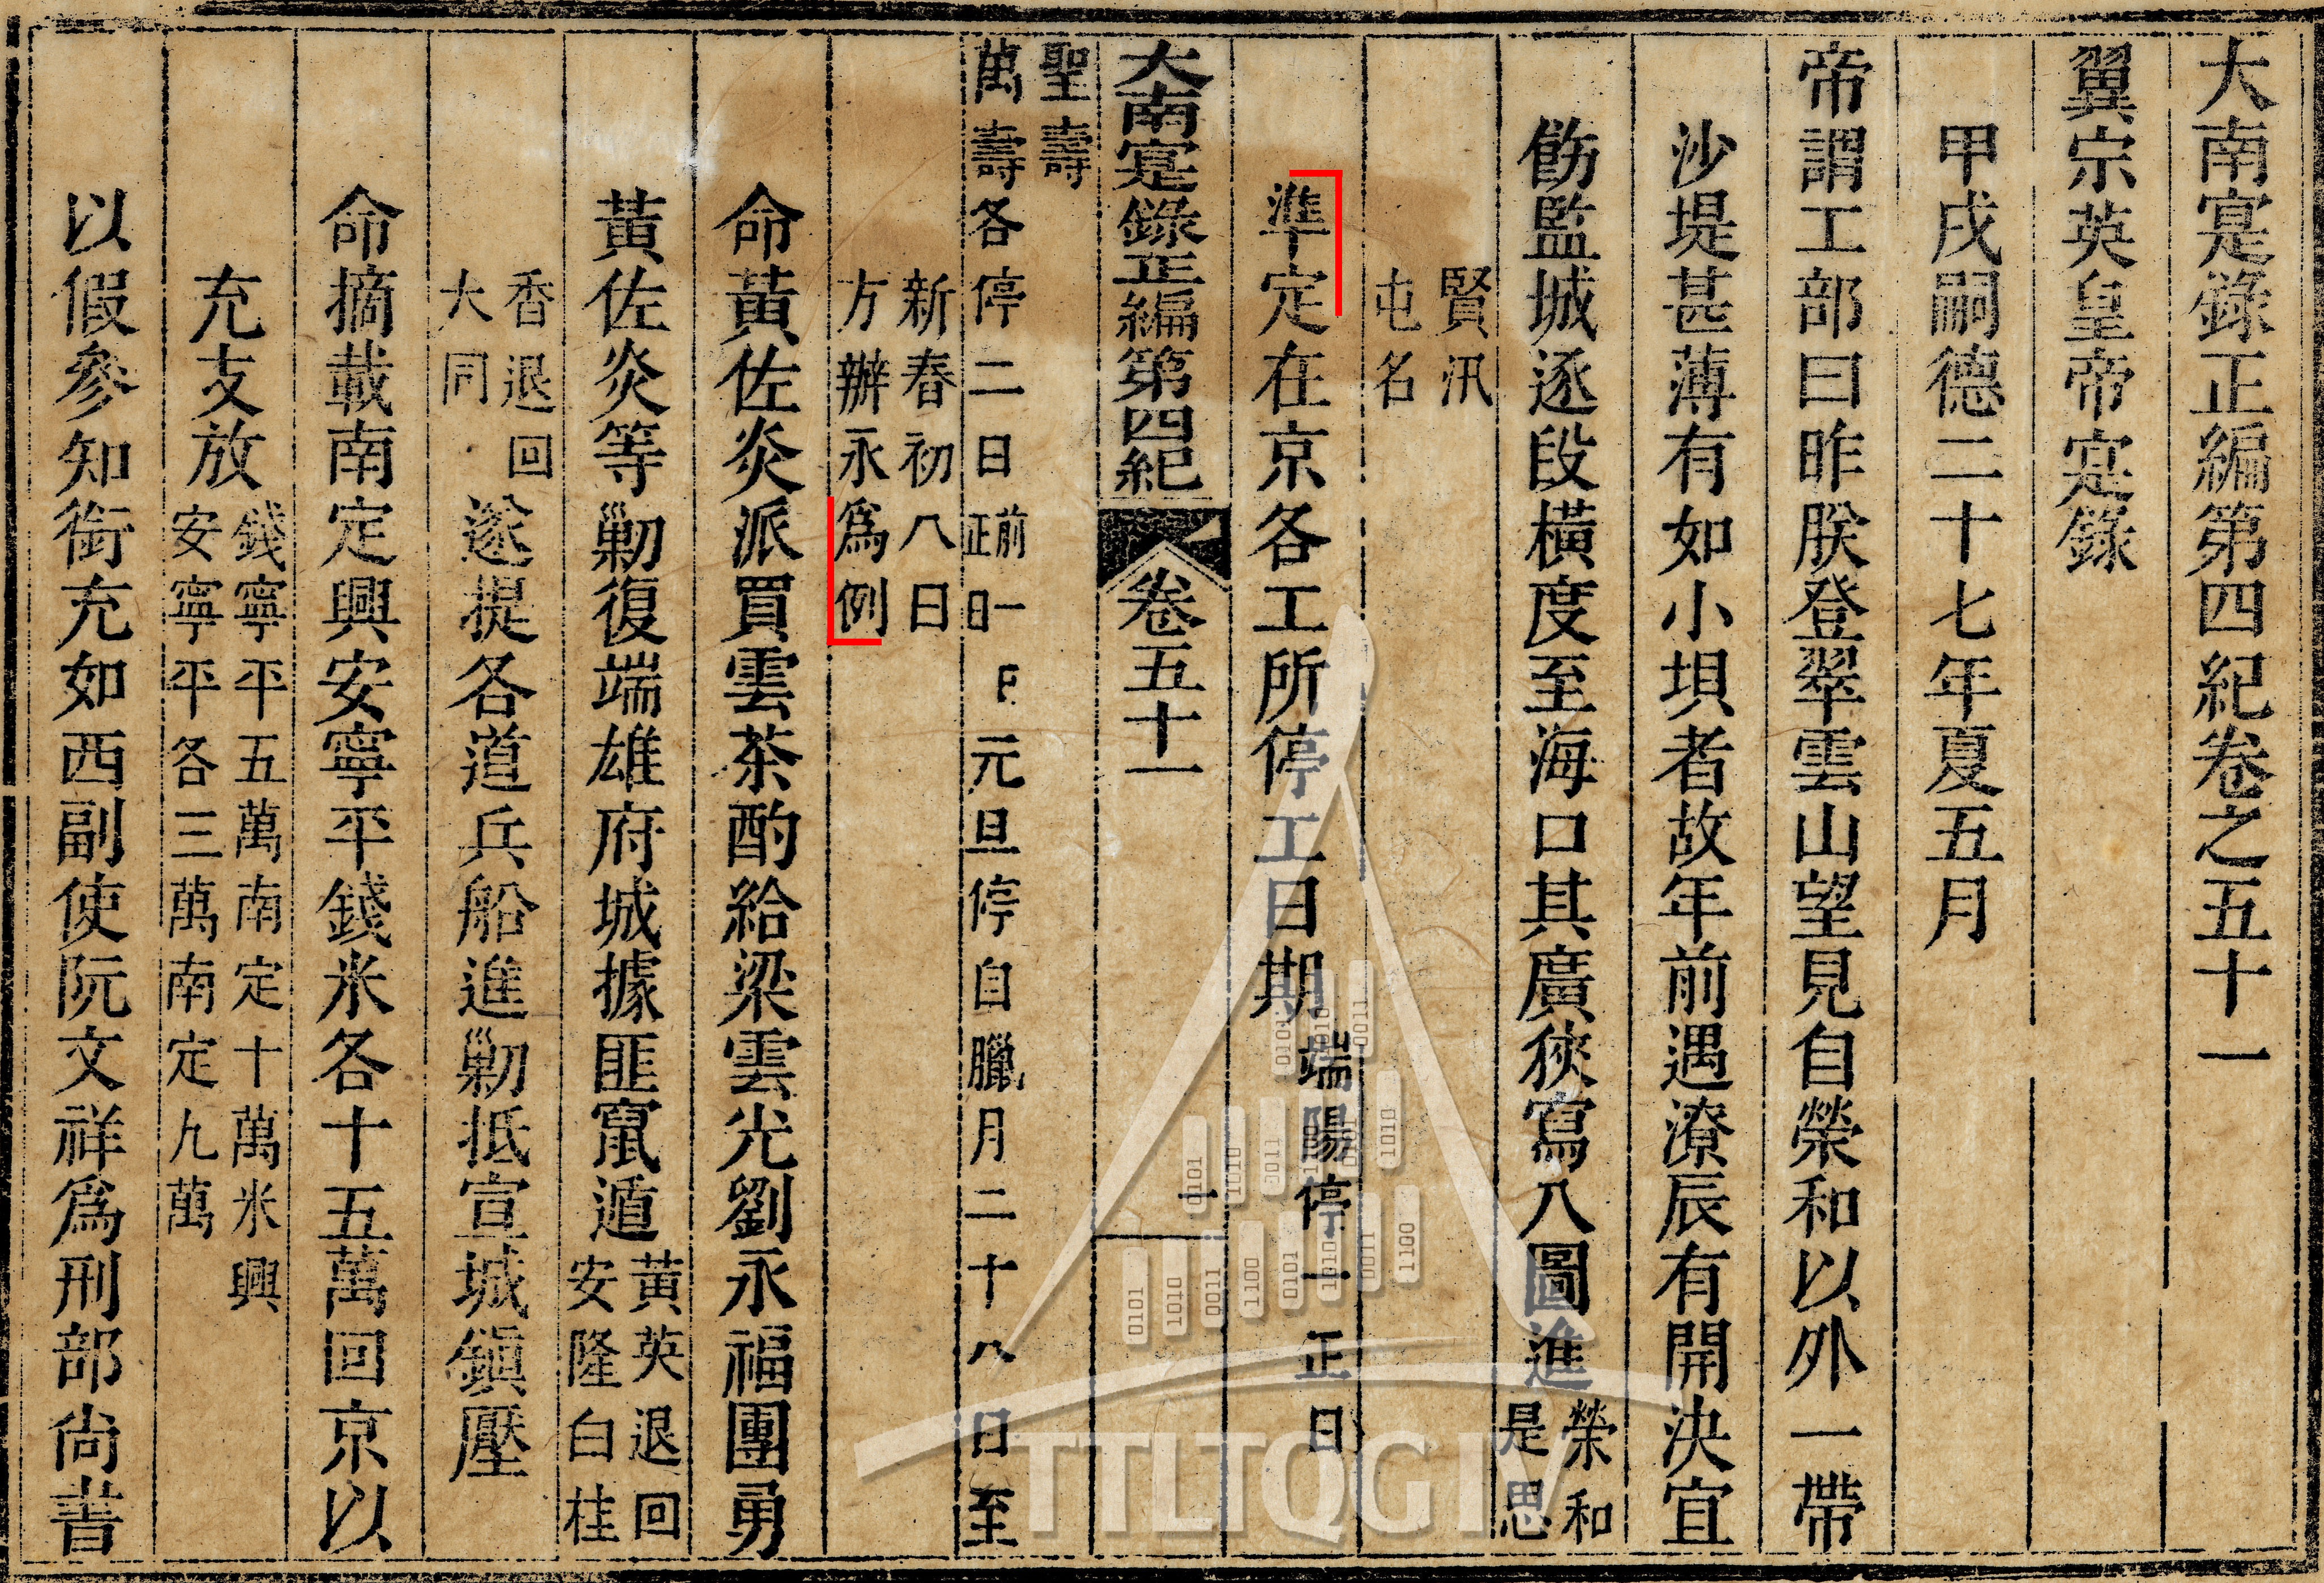 大南寔錄正編第四紀卷之五十一
翼宗英皇帝寔錄
甲戌嗣德二十七年夏五月
帝謂工部曰昨朕登翠雲山望見自榮和以外一帶
沙堤甚薄有如小垻者故年前遇潦辰有開決宜
飭監城逐段橫度至海口其廣狹寫八圖進榮和
是思
賢汛
屯名
準定在京各工所停工日期端陽停一正日
大南寔錄正編第四紀 卷五十一 一
聖壽
萬壽各停二日前一
正日
元旦停自臘月二十八日至
新春初八日
方辦永爲例
命黃佐炎派買雲茶酌給梁雲光劉永福團勇
黃佐炎等剿復端雄府城據匪竄遁黃英退回
安隆白桂
香退回
大同
遂提各道兵船進剿抵宣城鎭壓
命摘載南定興安寧平錢米各十五萬回京以
充支放錢寧平五萬南定十萬米興
安寧平各三萬南定九萬
以假參知銜充如西副使阮文祥爲刑部尚書
TTLTQG IV